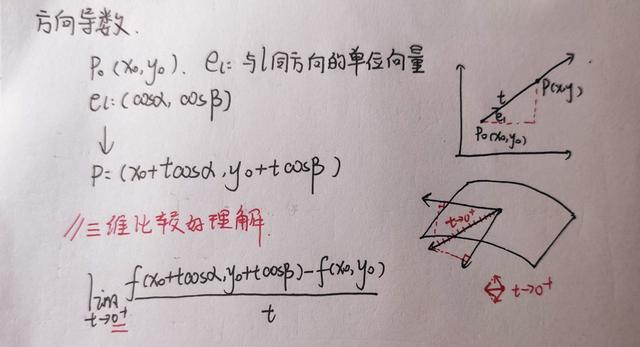 方向导数.
P₀(x₀,y₀). eₗ: 与l同方向的单位向量
eₗ:(cosα, cosβ)
↓
P=(x₀+tcosα,y₀+tcosβ)
//三维比较好理解.
lim t→0⁺ f(x₀+tcosα,y₀+tcosβ)-f(x₀,y₀) / t
t
eₗ
P(x,y)
P₀(x₀,y₀)
t→0⁺
t→0⁺